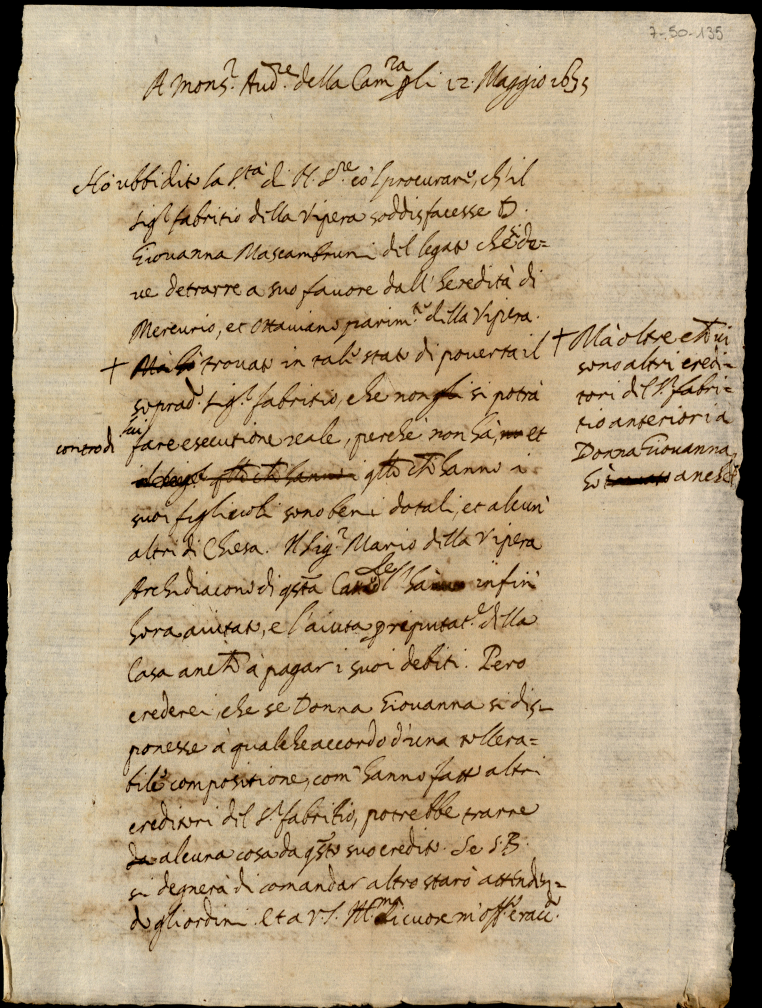 7-50-135
A Mons.r Aud.re della Cam.ra p li 12. Maggio 1635
Hò ubbidito la S.tà di N. S.re cō l procurare, ch'il
Sig.r fabritio della Vipera soddisfacesse D.
Giovanna Mascambruni del legato che de=
ve detrarre a suo favore dall'heredità di
Mercurio, et Ottaviano parim.te della Vipera.
+ Ma hò trovato in tale stato di povertà il
soprad.o Sig.r fabritio, che non gli si potrà
contro di lui fare esecutione reale, perche non hà, et
q̃llo che hanno i
suoi figliuoli sono beni dotali, et alcuni
altri di Chiesa. Il Sig.r Mario della Vipera
Archidiacono di q̃sta Cat.le l'hà infin'
hora aiutato, e l'aiuta p reputat.e della
Casa anche à pagar i suoi debiti. Però
crederei, che se Donna Giovanna si dis=
ponesse à qualche accordo d'una tollera=
bile compositione, com' hanno fatto altri
creditori del S.r fabritio, potrebbe trarre
da alcuna cosa da q̃sto suo credito. Se S. B.
si degnerà di comandar altro starò attenden=
do gli ordini. Et a V. S. Ill.ma di cuore m'off.o e racc.o
+ Mà oltre che vi
sono altri credi=
tori del S.r fabri=
tio anteriori a
Donna Giovanna,
hò anche